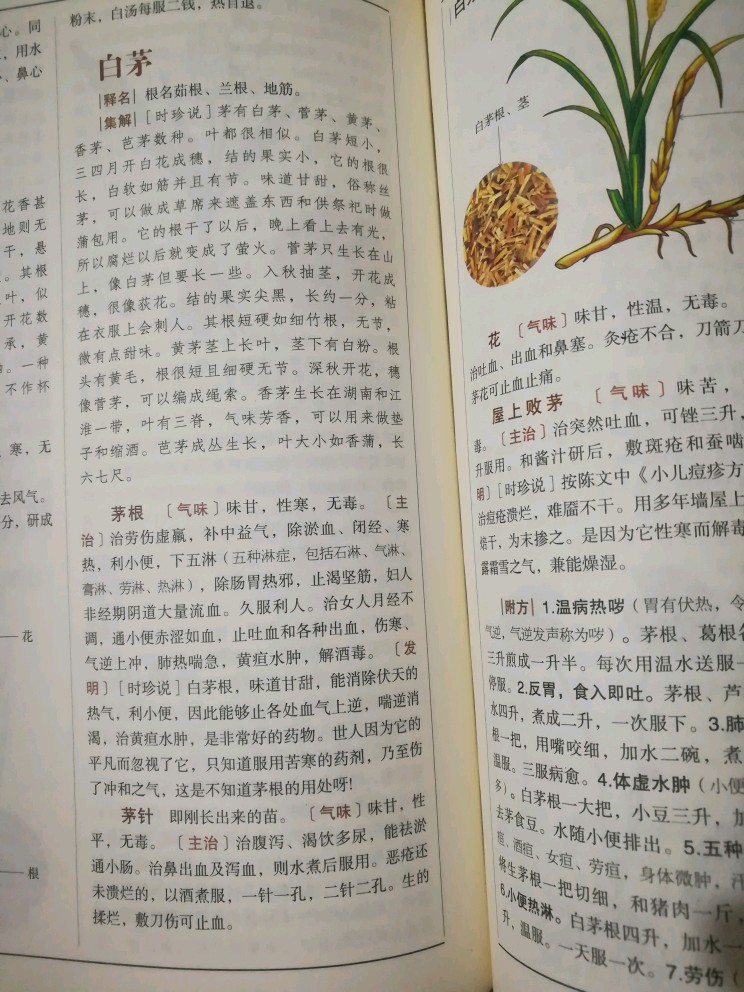 心。同
，用水
、鼻心
花香甚
地则无
干，悬
。其根
叶，似
开花数
承，黄
。一种
不作杯
寒，无
去风气。
分，研成
花
根
粉末，白汤每服二钱，热自退。
白茅
|释名| 根名茹根、兰根、地筋。
|集解|［时珍说］茅有白茅、菅茅、黄茅、
香茅、芭茅数种。叶都很相似。白茅短小，
三四月开白花成穗，结的果实小，它的根很
长，白软如筋并且有节。味道甘甜，俗称丝
茅，可以做成草席来遮盖东西和供祭祀时做
蒲包用。它的根干了以后，晚上看上去有光，
所以腐烂以后就变成了萤火。菅茅只生长在山
上，像白茅但要长一些。入秋抽茎，开花成
穗，很像荻花。结的果实尖黑，长约一分，粘
在衣服上会刺人。其根短硬如细竹根，无节，
微有点甜味。黄茅茎上长叶，茎下有白粉。根
头有黄毛，根很短且细硬无节。深秋开花，穗
像菅茅，可以编成绳索。香茅生长在湖南和江
淮一带，叶有三脊，气味芳香，可以用来做垫
子和缩酒。芭茅成丛生长，叶大小如香蒲，长
六七尺。
茅根 〔气味〕味甘，性寒，无毒。〔主
治〕治劳伤虚羸，补中益气，除淤血、闭经、寒
热，利小便，下五淋（五种淋症，包括石淋、气淋、
膏淋、劳淋、热淋），除肠胃热邪，止渴坚筋，妇人
非经期阴道大量流血。久服利人。治女人月经不
调，通小便赤涩如血，止吐血和各种出血，伤寒、
气逆上冲，肺热喘急，黄疸水肿，解酒毒。〔发
明〕［时珍说］白茅根，味道甘甜，能消除伏天的
热气，利小便，因此能够止各处血气上逆，喘逆消
渴，治黄疸水肿，是非常好的药物。世人因为它的
平凡而忽视了它，只知道服用苦寒的药剂，乃至伤
了冲和之气，这是不知道茅根的用处呀!
茅针 即刚长出来的苗。〔气味〕味甘，性
平，无毒。〔主治〕治腹泻、渴饮多尿，能祛淤
通小肠。治鼻出血及泻血，则水煮后服用。恶疮还
未溃烂的，以酒煮服，一针一孔，二针二孔。生的
揉烂，敷刀伤可止血。
白茅根、茎
花 〔气味〕味甘，性温，无毒。
治吐血、出血和鼻塞。灸疮不合，刀箭刀
茅花可止血止痛。
屋上败茅 〔气味〕味苦，
毒。〔主治〕治突然吐血，可锉三升，
升服用。和酱汁研后，敷斑疮和蚕啮
明〕［时珍说］按陈文中《小儿痘疹方
治痘疮溃烂，难靥不干。用多年墙屋上
焙干，为末掺之。是因为它性寒而解毒
露霜雪之气，兼能燥湿。
|附方| 1.温病热哕（胃有伏热，令
气逆，气逆发声称为哕）。茅根、葛根各
三升煎成一升半。每次用温水送服一
停服。2.反胃，食入即吐。茅根、芦
水四升，煮成二升，一次服下。3.肺
根一把，用嘴咬细，加水二碗，煮
温服。三服病愈。4.体虚水肿（小便
多）。白茅根一大把，小豆三升，加
去茅食豆。水随小便排出。5.五种
疸，酒疸、女疸、劳疸，身体微肿，汗
将生茅根一把切细，和猪肉一斤，
6.小便热淋。白茅根四升，加水一
升，温服。一天服一次。7.劳伤（